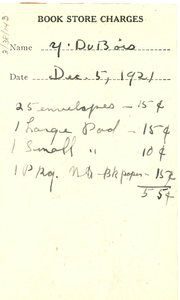 BOOK STORE CHARGES
Name Y. DuBois
Date Dec. 5, 1921
25 envelopes – 15¢
1 Large Pad – 15¢
1 Small " 10¢
1 Pkg. Nt-Bk paper – 15¢
55¢